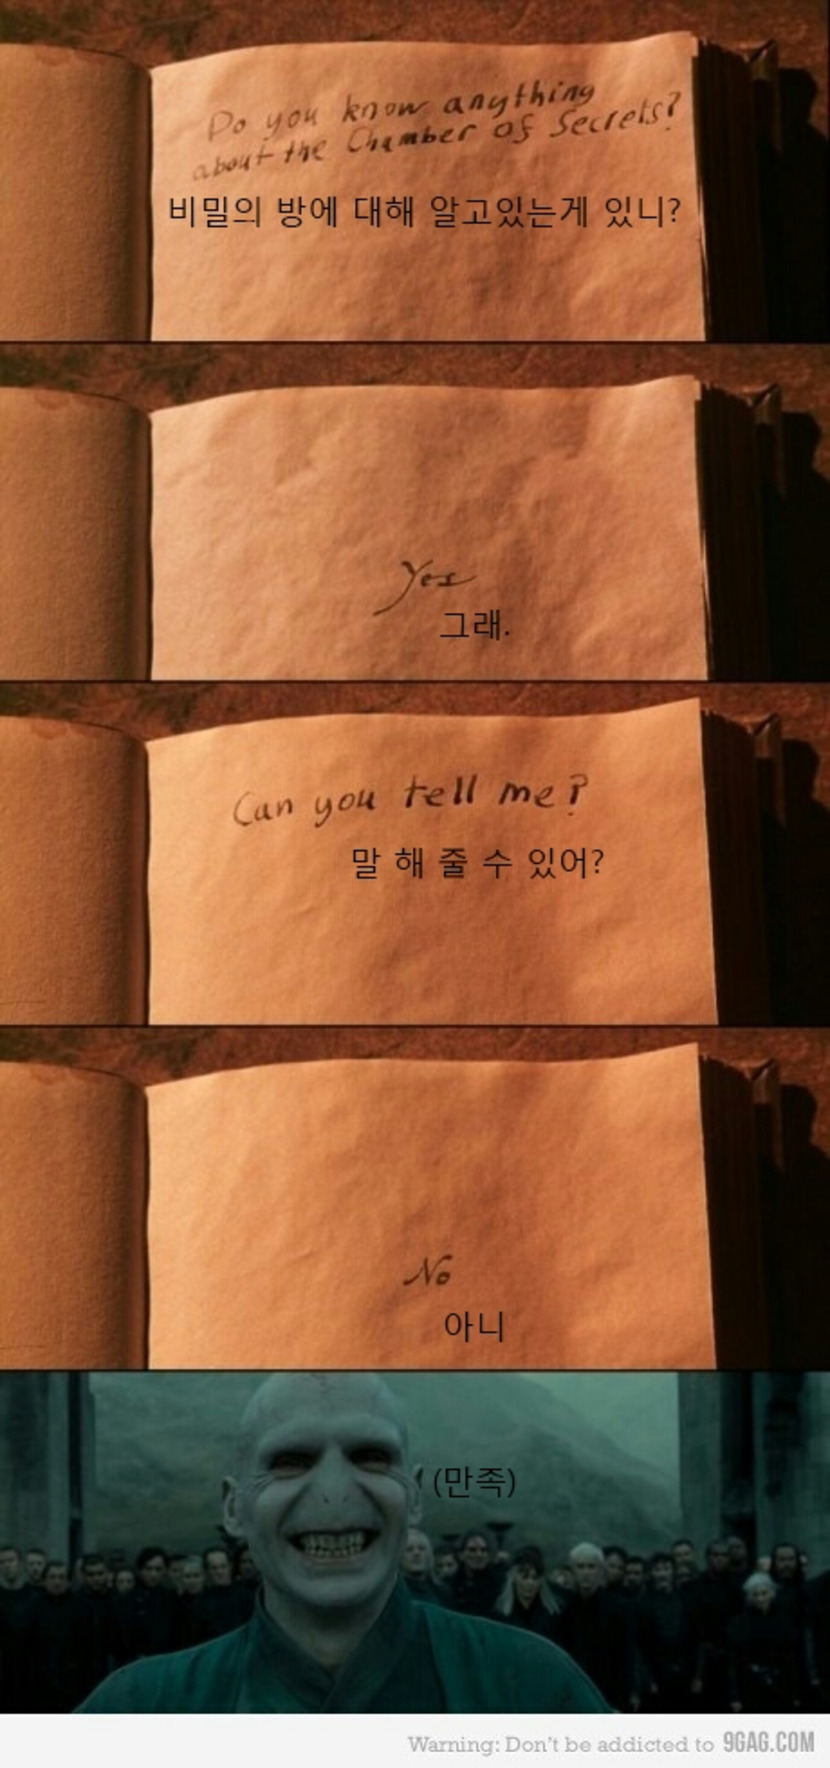 Do you know anything
about the Chamber of Secrets?
비밀의 방에 대해 알고있는게 있니?
Yes
그래.
Can you tell me?
말 해 줄 수 있어?
No
아니
(만족)
Warning: Don't be addicted to 9GAG.COM